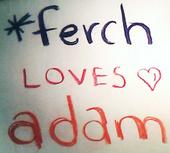 *ferch
LOVES ♡
adam